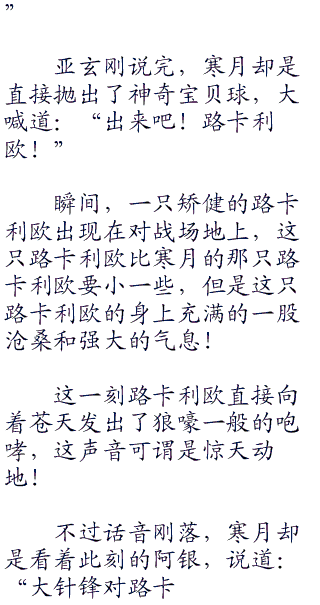 ”
亚玄刚说完，寒月却是
直接抛出了神奇宝贝球，大
喊道：“出来吧！路卡利
欧！”
瞬间，一只矫健的路卡
利欧出现在对战场地上，这
只路卡利欧比寒月的那只路
卡利欧要小一些，但是这只
路卡利欧的身上充满的一股
沧桑和强大的气息！
这一刻路卡利欧直接向
着苍天发出了狼嚎一般的咆
哮，这声音可谓是惊天动
地！
不过话音刚落，寒月却
是看着此刻的阿银，说道：
“大针锋对路卡